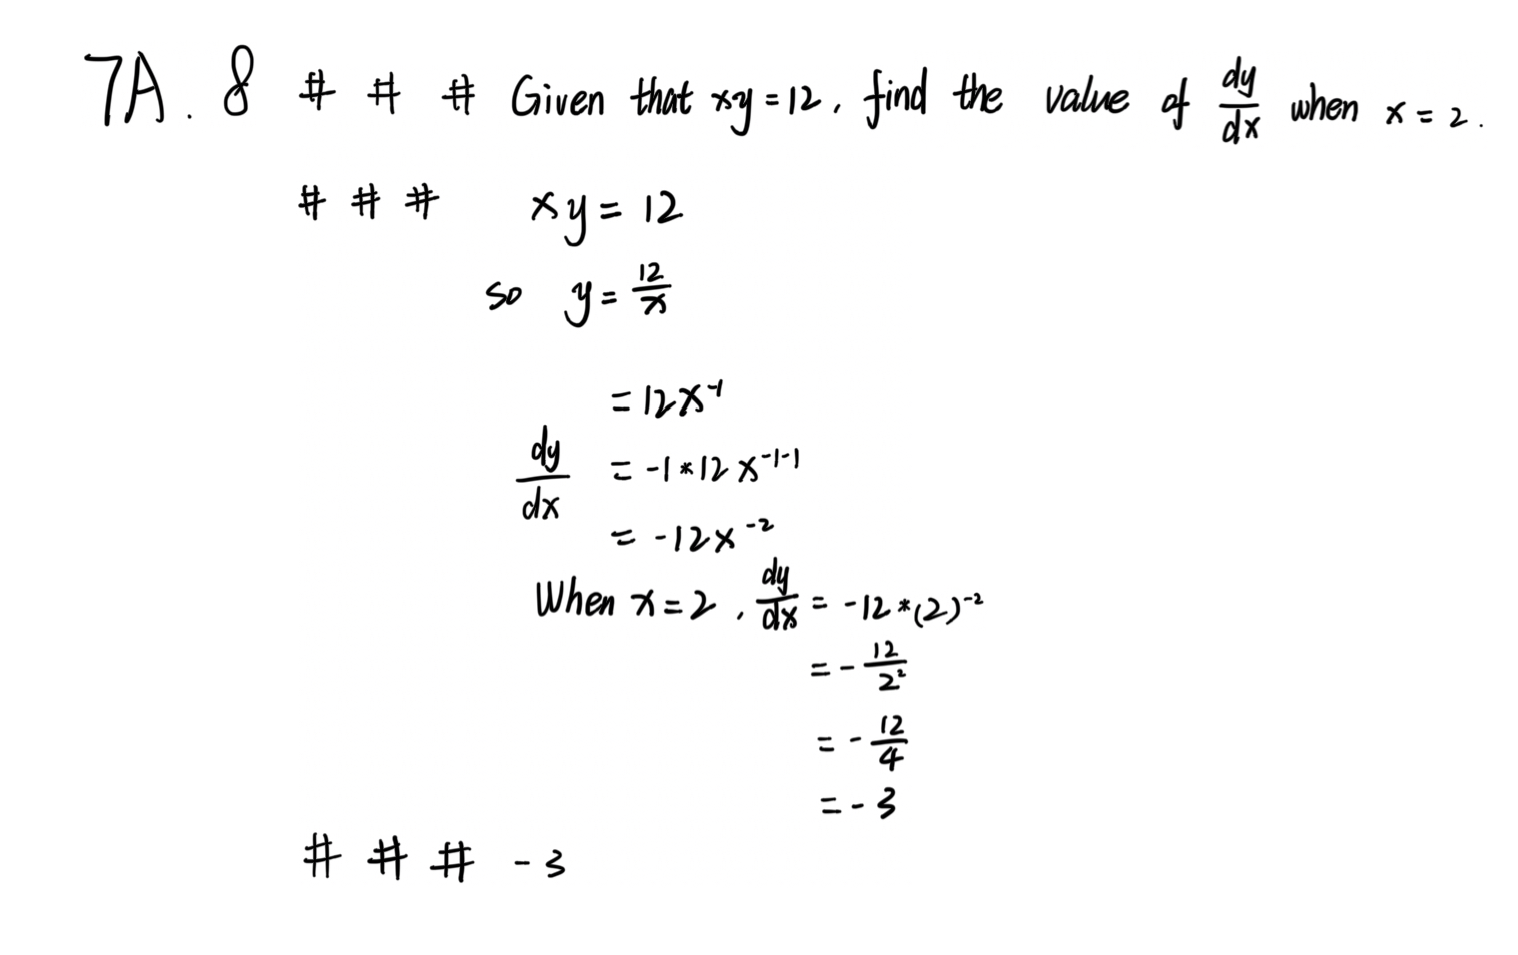 7A. 8 # # # Given that xy = 12, find the value of dy/dx when x = 2.
# # # xy = 12
so y = 12/x
= 12x⁻¹
dy/dx = -1*12x⁻¹⁻¹
= -12x⁻²
When x = 2, dy/dx = -12*(2)⁻²
= - 12/2²
= - 12/4
= - 3
# # # - 3